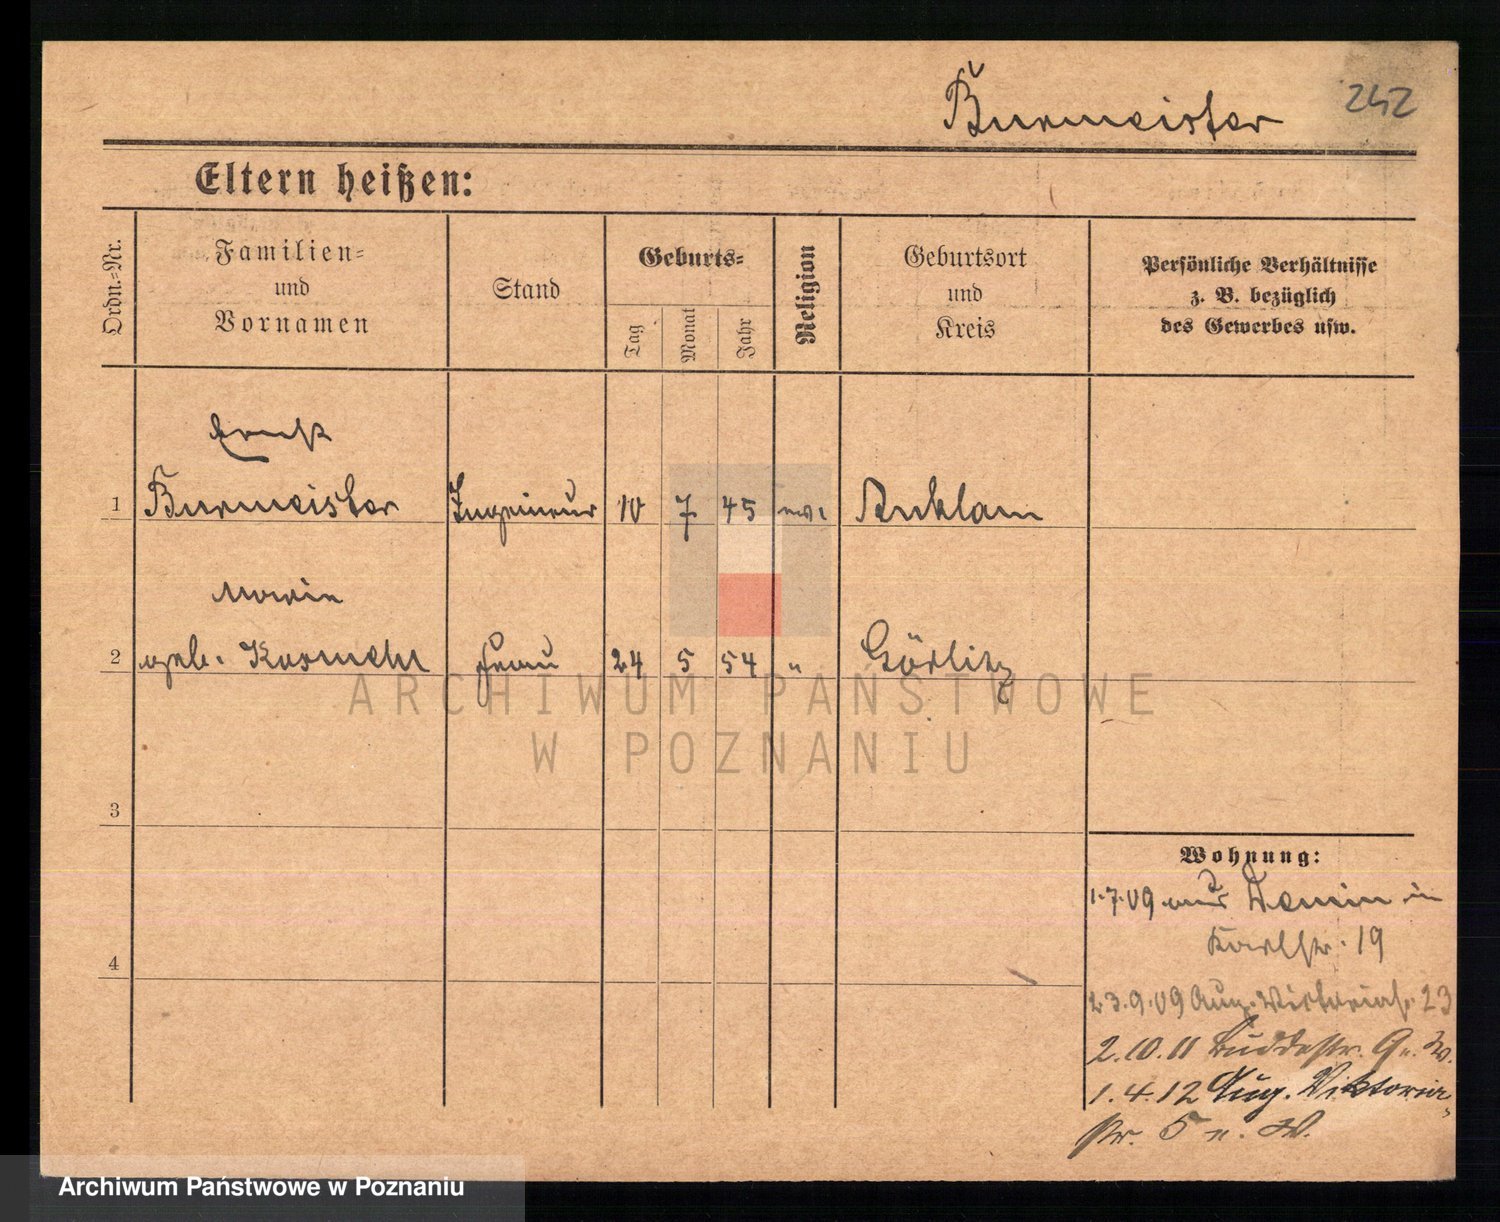 Burmeister
242
Eltern heißen:
Ordn.-Nr.
Familien-
und
Vornamen
Stand
Geburts-
Tag
Monat
Jahr
Religion
Geburtsort
und
Kreis
Persönliche Verhältnisse
z. B. bezüglich
des Gewerbes usw.
Ernst
1 Burmeister Ingenieur 10 7 45 ev. Anklam
Marie
2 geb. Frau 24 5 54 " Görlitz
3
4
Wohnung:
1.7.09 aus Demmin in
Karlstr. 19
23.9.09 Aug. Viktoriastr. 23
2.10.11 Buddestr. 9 u. W.
1.4.12 Aug. Viktoria-
str. 5 u. W.
ARCHIWUM PAŃSTWOWE
W POZNANIU
Archiwum Państwowe w Poznaniu